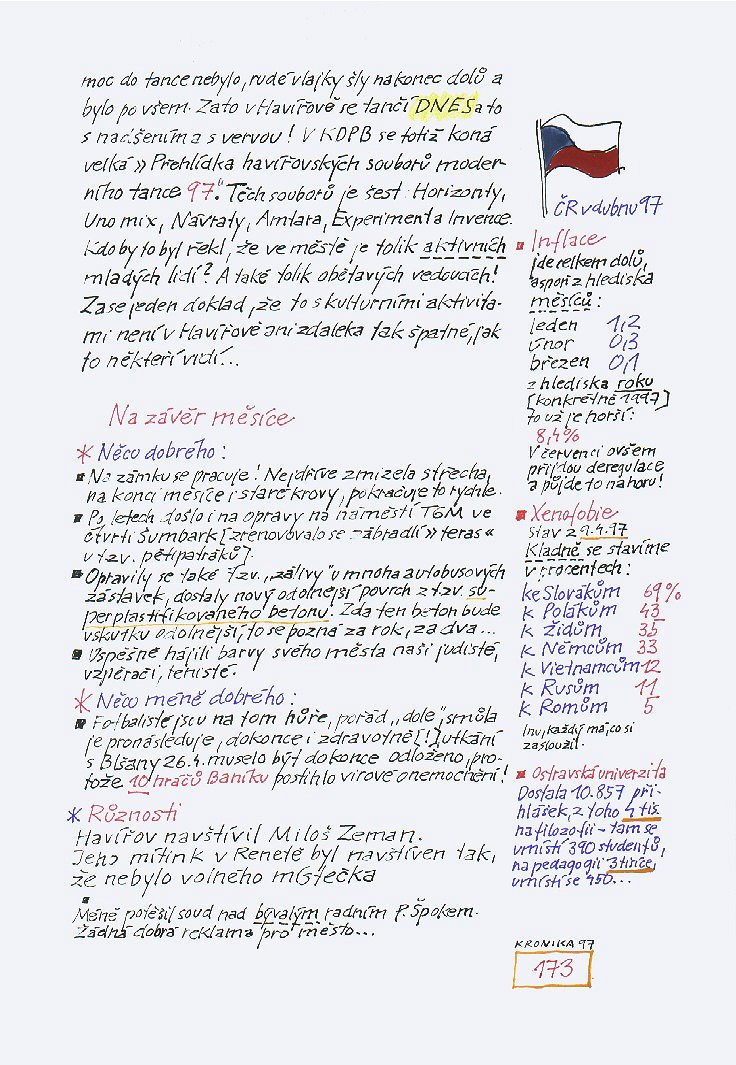 moc do tance nebylo, rudé vlajky šly nakonec dolů a
bylo po všem. Zato v Havířově se tančí DNES a to
s nadšením a s vervou! V KDPB se totiž koná
velká » Přehlídka havířovských souborů moder-
ního tance 97." Těch souborů je šest: Horizonty,
Uno mix, Návraty, Amtara, Experiment a Invence.
Kdo by to byl řekl, že ve městě je tolik aktivních
mladých lidí? A také tolik obětavých vedoucích!
Zase jeden doklad, že to s kulturními aktivita-
mi není v Havířově ani zdaleka tak špatné, jak
to někteří vidí...
Na závěr měsíce
* Něco dobrého:
Na zámku se pracuje! Nejdříve zmizela střecha,
na konci měsíce i staré krovy, pokračuje to rychle.
Po letech došlo i na opravy na náměstí TGM ve
čtvrti Šumbark [zrenovovalo se zábradlí » teras «
u tzv. pětipatráků].
Opravily se také tzv. „zálivy" u mnoha autobusových
zastávek, dostaly nový odolnější povrch z tzv. su-
perplastifikovaného betonu. Zda ten beton bude
vskutku odolnější, to se pozná za rok, za dva...
Úspěšně hájili barvy svého města naši judisté,
vzpěrači, tenisté.
* Něco méně dobrého:
Fotbalisté jsou na tom hůře, pořád „dole", smůla
je pronásleduje, dokonce i zdravotně [!] utkání
s Blšany 26.4. muselo být dokonce odloženo, pro-
tože 10 hráčů Baníku postihlo virové onemocnění!
* Různosti
Havířov navštívil Miloš Zeman.
Jeho mítink v Renetě byl navštíven tak,
že nebylo volného místečka
Méně potěšil soud nad bývalým radním P. Špokem.
Žádná dobrá reklama pro město...
ČR v dubnu 97
Inflace
jde celkem dolů,
aspoň z hlediska
měsíců:
leden 1,2
únor 0,3
březen 0,1
z hlediska roku
[konkrétně 1997]
to už je horší:
8,4%
V červenci ovšem
přijdou deregulace
a půjde to nahoru!
Xenofobie
Stav z 9.4.97
Kladně se stavíme
v procentech:
ke Slovákům 69%
k Polákům 43
k Židům 35
k Němcům 33
k Vietnamcům 12
k Rusům 11
k Romům 5
Inu, každý má, co si
zasloužil.
Ostravská univerzita
Dostala 10.857 při-
hlášek, z toho 4 tis.
na filozofii - tam se
umístí 390 studentů,
na pedagogii 3 tisíce,
umístí se 450...
KRONIKA 97
173